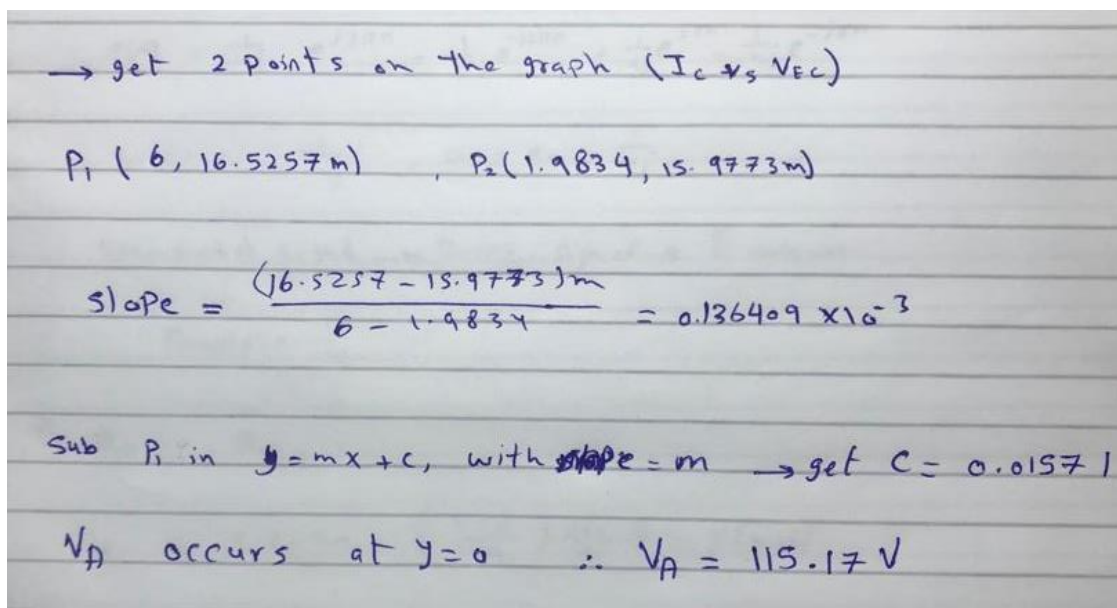 → get 2 points on the graph (Ic vs VEC)
P1 ( 6, 16.5257m) , P2 (1.9834, 15.9773m)
slope = (16.5257 - 15.9773)m / 6 - 1.9834 = 0.136409 x10^-3
Sub P1 in y = mx + c, with slope = m → get C = 0.01571
VA occurs at y=0 ∴ VA = 115.17 V